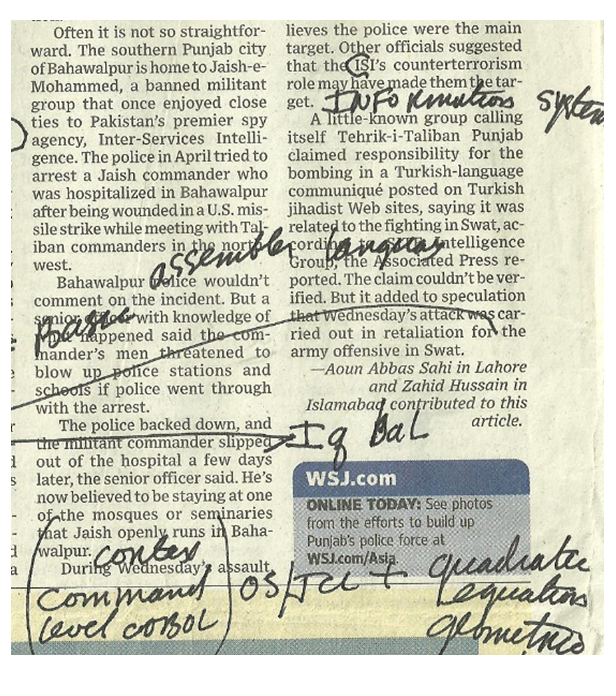 Often it is not so straightfor-
ward. The southern Punjab city
of Bahawalpur is home to Jaish-e-
Mohammed, a banned militant
group that once enjoyed close
ties to Pakistan's premier spy
agency, Inter-Services Intelli-
gence. The police in April tried to
arrest a Jaish commander who
was hospitalized in Bahawalpur
after being wounded in a U.S. mis-
sile strike while meeting with Tal-
iban commanders in the north-
west.
Bahawalpur police wouldn't
comment on the incident. But a
senior officer with knowledge of
happened said the com-
mander's men threatened to
blow up police stations and
schools if police went through
with the arrest.
The police backed down, and
the militant commander slipped
out of the hospital a few days
later, the senior officer said. He's
now believed to be staying at one
of the mosques or seminaries
that Jaish openly runs in Baha-
walpur.
During Wednesday's assault,
lieves the police were the main
target. Other officials suggested
that the ISI's counterterrorism
role may have made them the tar-
get.
INFORmation system
A little-known group calling
itself Tehrik-i-Taliban Punjab
claimed responsibility for the
bombing in a Turkish-language
communiqué posted on Turkish
jihadist Web sites, saying it was
related to the fighting in Swat, ac-
cording Intelligence
Group, the Associated Press re-
ported. The claim couldn't be ver-
ified. But it added to speculation
that Wednesday's attack was car-
ried out in retaliation for the
army offensive in Swat.
—Aoun Abbas Sahi in Lahore
and Zahid Hussain in
Islamabad contributed to this
article.
assembler
Basic
Iq BaL
WSJ.com
ONLINE TODAY: See photos
from the efforts to build up
Punjab's police force at
WSJ.com/Asia
command
level COBOL
OS/JCL +
equations
geometric